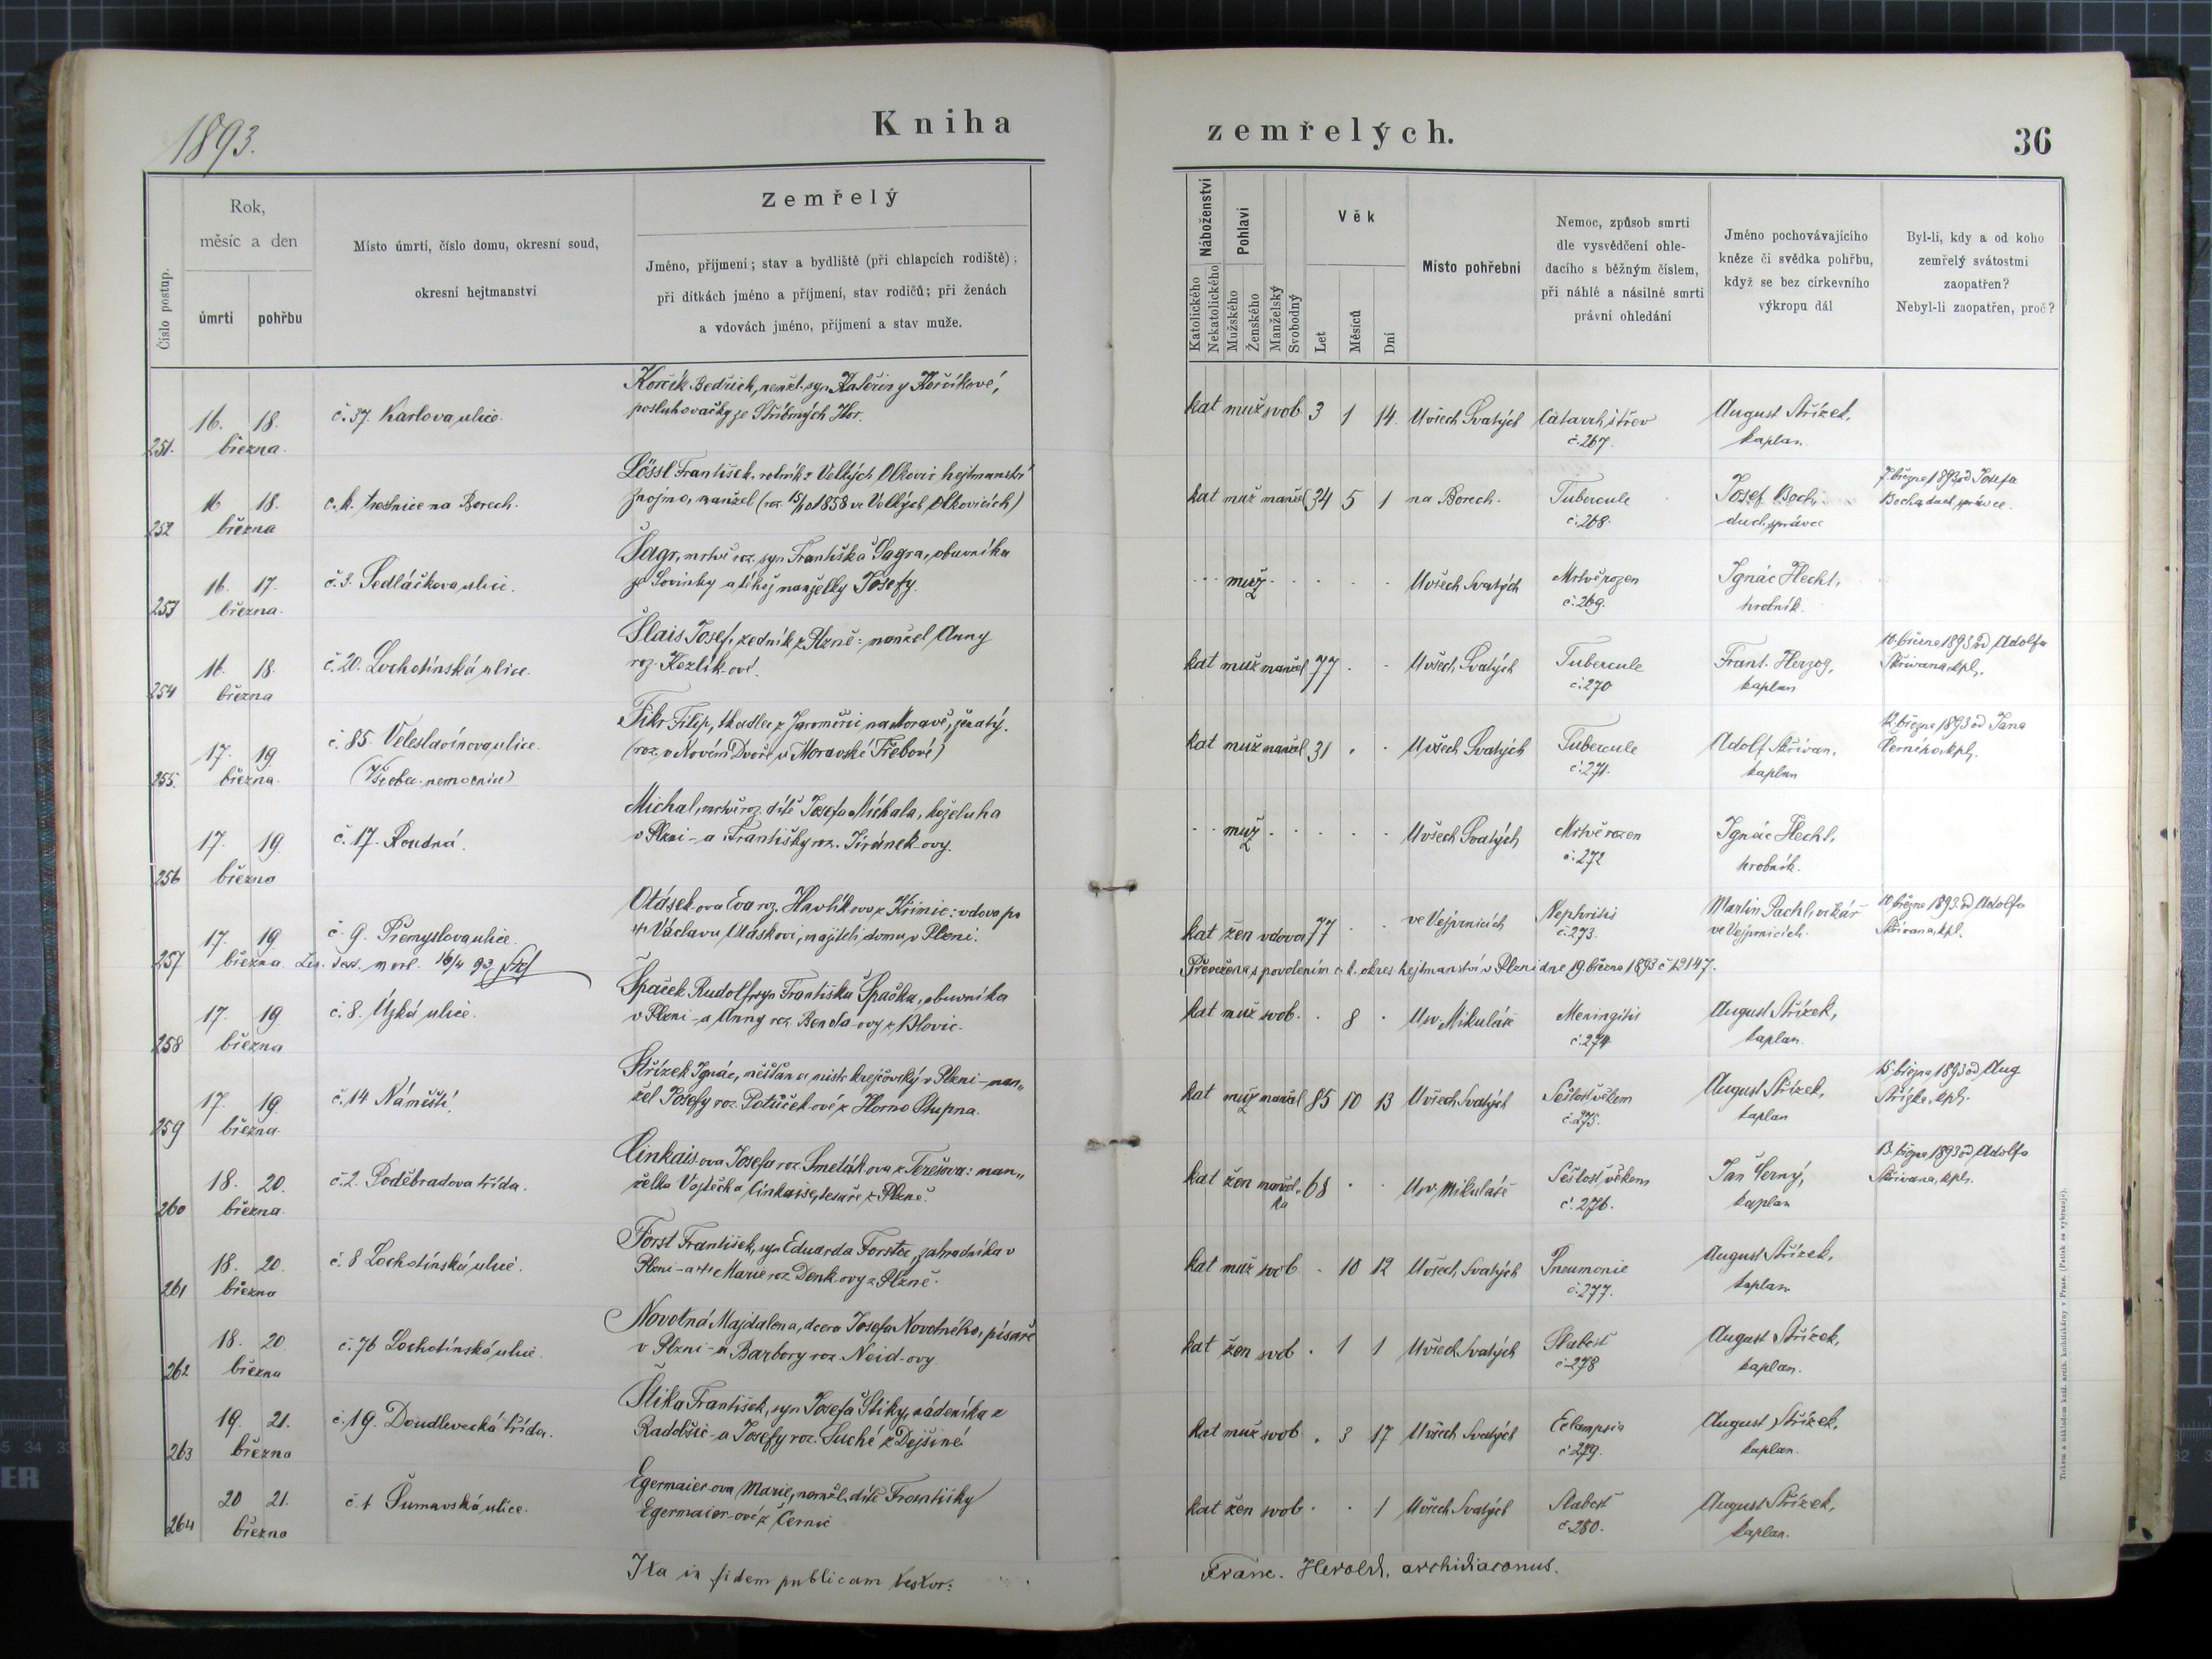 1893.
Kniha
zemřelých.
36
Číslo postup.
Rok,
měsíc a den
úmrtí
pohřbu
Místo úmrtí, číslo domu, okresní soud,
okresní hejtmanství
Zemřelý
Jméno, příjmení; stav a bydliště (při chlapcích rodiště);
při dítkách jméno a příjmení, stav rodičů; při ženách
a vdovách jméno, příjmení a stav muže.
Náboženství
Katolického
Nekatolického
Pohlaví
Mužského
Ženského
Manželský
Svobodný
Věk
Let
Měsíců
Dní
Místo pohřební
Nemoc, způsob smrti
dle vysvědčení ohle-
dacího s běžným číslem,
při náhlé a násilné smrti
právní ohledání
Jméno pochovávajícího
kněze či svědka pohřbu,
když se bez církevního
výkropu dál
Byl-li, kdy a od koho
zemřelý svátostmi
zaopatřen?
Nebyl-li zaopatřen, proč?
251. 16. 18. března. č. 37. Karlova ulice.
Korčík Bedřich, nemžl. syn Kateřiny Korčíkové,
posluhovačky ze Stříbrných Hor.
kat muž svob 3 1 14. U všech Svatých Catarrh střev č. 267. August Střízek, kaplan.
252 16 18. března c. k. trestnice na Borech.
Lössl František, rolník z Velkých Olkovic hejtmanství
Znojmo, manžel (roz. 15/10 1858 ve Velkých Olkovicích)
kat muž manžel 34 5 1 na Borech. Tubercule č. 268. Josef Boch, duch. správce
7. března 1893 od Josefa
Bocha, duch. správce.
253 16. 17. března. č. 3. Sedláčkova ulice.
Šagr, mrtvě roz. syn Františka Šagra, obuvníka
ze Lovinky a téhož manželky Josefy.
muž U všech Svatých Mrtvě rozen č. 269. Ignác Hecht, hrobník.
254 16. 18. března č. 20. Lochotínská ulice.
Šlais Josef, zedník z Plzně: manžel Anny
roz. Kozlík-ové.
kat muž manžel 77 U všech Svatých Tubercule č. 270 Frant. Herzog, kaplan
10. března 1893 od Adolfa
Skřivana, kpl.
255. 17. 19 března. č. 85. Veleslavínova ulice.
(Všeobec. nemocnice)
Fikr Filip, tkadlec z Jaroměřic na Moravě, ženatý.
(roz. v Novém Dvoře u Moravské Třebové)
kat muž manžel 31 U všech Svatých Tubercule č. 271. Adolf Skřivan, kaplan
12. března 1893 od Jana
Černého, kpl.
256 17. 19. března č. 17. Roudná.
Michal, mrtvě roz. dítě Josefa Míchala, koželuha
v Plzni - a Františky roz. Jiránek-ovy.
muž U všech Svatých Mrtvě rozen č. 272 Ignác Hecht, hrobník.
257 17. 19 března. č. 9. Přemyslova ulice.
16/4 93
Otásek-ova Eva roz. Havlíkova z Křimic: vdova po
Václavu Otáskovi, majiteli domu v Plzni.
kat žen vdova 77 ve Vejprnicích Nephritis č. 273. Martin Pachl, vikář ve Vejprnicích.
10. března 1893. od Adolfa
Skřivana, kpl.
Převežena s povolením c. k. okres. hejtmanství v Plzni dne 19. března 1893 č 12147.
258 17. 19 března č. 8. Úzká ulice.
Špaček Rudolf, syn Františka Špačka, obuvníka
v Plzni - a Anny roz. Benda-ovy z Blovic.
kat muž svob. 8 U sv. Mikuláše Meningitis č. 274 August Střízek, kaplan.
259 17. 19. března. č. 14 Náměstí.
Střízek Ignác, měšťan a mistr krejčovský v Plzni - man„
žel Josefy roz. Potůček-ové z Horno Stupna.
kat muž manžel 85 10 13 U všech Svatých Sešlost věkem č. 275. August Střízek, kaplan
15. března 1893 od Aug.
Střízka, kpl.
260 18. 20. března. č. 2. Poděbradova třída.
Cinkais-ova Josefa roz. Smeták-ova z Terešova: man„
želka Vojtěcha Cinkaisse, tesaře z Plzně.
kat žen manžel„ka 68 U sv. Mikuláše Sešlost věkem č. 276. Jan Černý, kaplan
13. března 1893 od Adolfa
Skřivana, kpl.
261 18. 20. března č. 8 Lochotínská ulice.
Forst František, syn Eduarda Forsta, zahradníka v
Plzni - a Marie roz. Denk-ovy z Plzně.
kat muž svob 10 12 U všech Svatých Pneumonie č. 277. August Střízek, kaplan
262 18. 20. března č. 76 Lochotínská ulice.
Novotná Majdalena, dcera Josefa Novotného, písaře
v Plzni - a Barbory roz. Neid-ovy.
kat žen svob 1 1 U všech Svatých Slabost č. 278 August Střízek, kaplan.
263 19. 21. března č. 19. Doudlevecká třída.
Štika František, syn Josefa Štiky, nádeníka z
Radobšic - a Josefy roz. Suché z Dejšiné.
kat muž svob. 3 17 U všech Svatých Eclampsia č. 279. August Střízek, kaplan.
264 20 21. března č. 1 Šumavská ulice.
Egermaier-ova Marie, nemžl. dítě Františky
Egermaier-ové z Černic
kat žen svob. 1 U všech Svatých Slabost č. 280. August Střízek, kaplan.
Ita in fidem publicam testor:
Franc. Herold, archidiaconus.